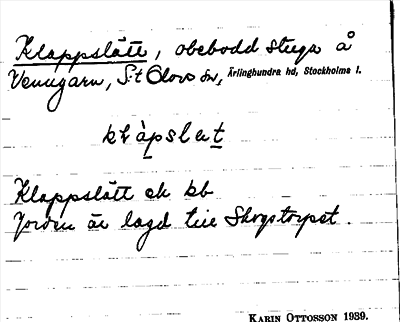 Klappslätt, obebodd stuga å
Venngarn, S:t Olovs sn, Ärlinghundra hd, Stockholms l.
Klappslätt ek kb
Jorden är lagd till Skogstorpet.
KARIN OTTOSSON 1939.